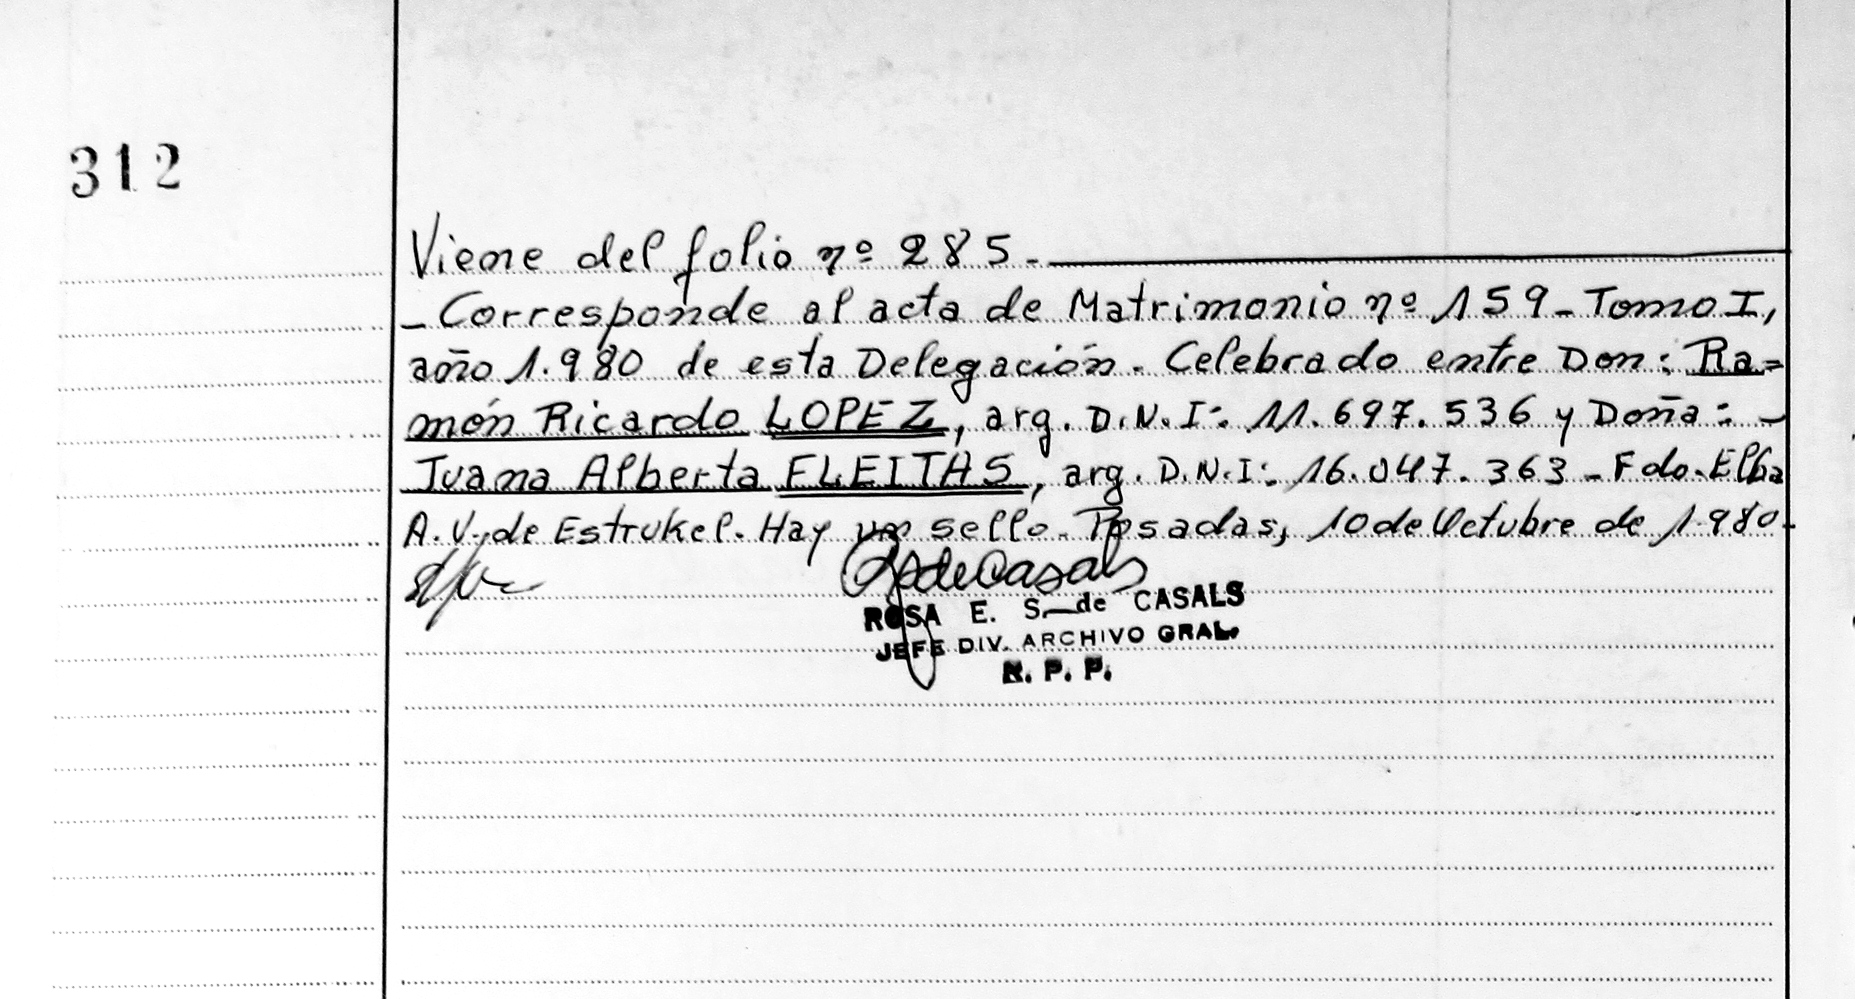 312
Viene del folio nº 285.-
- Corresponde al acta de Matrimonio nº 159 - Tomo I,
año 1.980 de esta Delegación. Celebrado entre Don: Ra=
món Ricardo LOPEZ, arg. D.N.I: 11.697.536 y Doña: -
Juana Alberta FLEITAS, arg. D.N.I: 16.047.363 - Fdo. Elba
A. V. de Estrukel. Hay un sello. Posadas, 10 de Octubre de 1.980.
deCasals
ROSA E. S. de CASALS
JEFE DIV. ARCHIVO GRAL.
R. P. P.